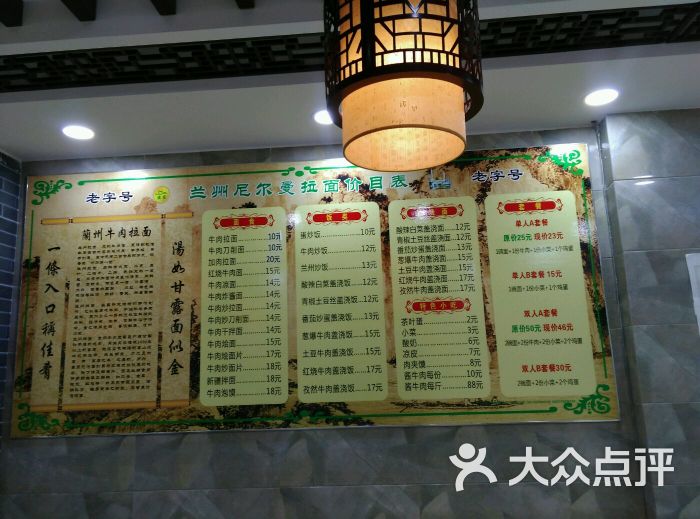 兰州尼尔曼拉面价目表
老字号
老字号
蘭州牛肉拉面
一條入口稱佳肴
湯如甘露面似金
面食
牛肉拉面 10元
牛肉刀削面 10元
加肉拉面 20元
红烧牛肉面 15元
牛肉凉面 14元
牛肉炸酱面 14元
牛肉炒拉面 14元
牛肉炒刀削面 14元
牛肉干拌面 14元
牛肉烩面 15元
牛肉烩面片 17元
牛肉炒面片 17元
新疆拌面 18元
牛肉泡馍 18元
饭类
蛋炒饭 10元
牛肉炒饭 12元
兰州炒饭 13元
酸辣白菜盖浇饭 12元
青椒土豆丝盖浇饭 12元
番茄炒蛋盖浇饭 13元
葱爆牛肉盖浇饭 15元
土豆牛肉盖浇饭 17元
红烧牛肉盖浇饭 17元
孜然牛肉盖浇饭 17元
酸辣白菜盖浇面 12元
青椒土豆丝盖浇面 12元
番茄炒蛋盖浇面 13元
葱爆牛肉盖浇面 15元
土豆牛肉盖浇面 17元
红烧牛肉盖浇面 17元
孜然牛肉盖浇面 17元
特色小吃
茶叶蛋 2元
小菜 3元
酸奶 6元
凉皮 7元
肉夹馍 8元
酱牛肉每份 10元
酱牛肉每斤 88元
套餐
单人A套餐
原价25元 现价23元
1碗面+1份牛肉+1份小菜+1个鸡蛋
单人B套餐 15元
1碗面+1份小菜+1个鸡蛋
双人A套餐
原价50元 现价46元
2碗面+2份牛肉+2份小菜+2个鸡蛋
双人B套餐30元
2碗面+2份小菜+2个鸡蛋
大众点评